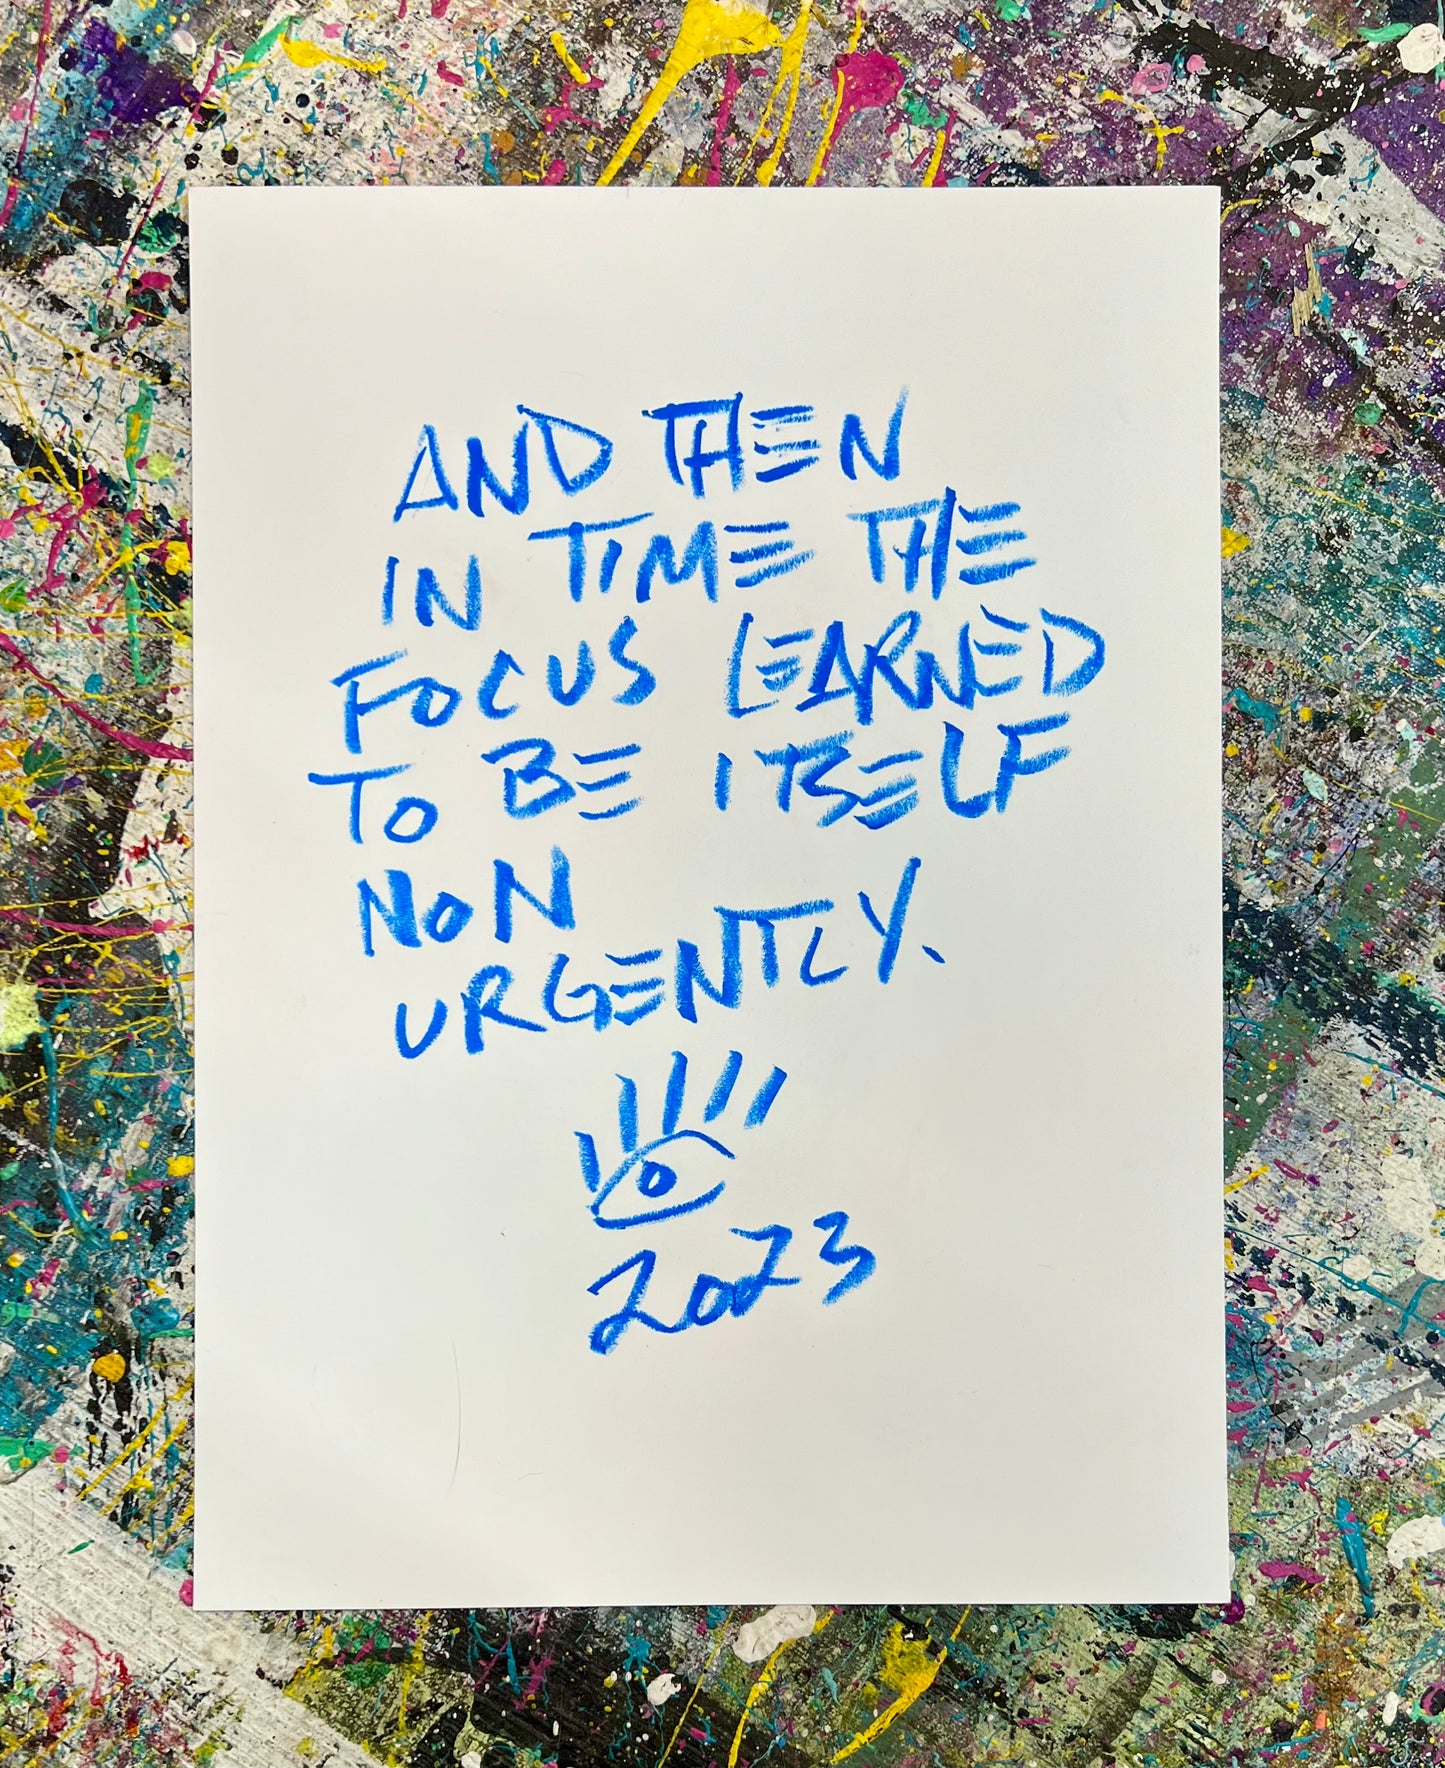 AND THEN
IN TIME THE
FOCUS LEARNED
TO BE ITSELF
NON
URGENTLY.
2023